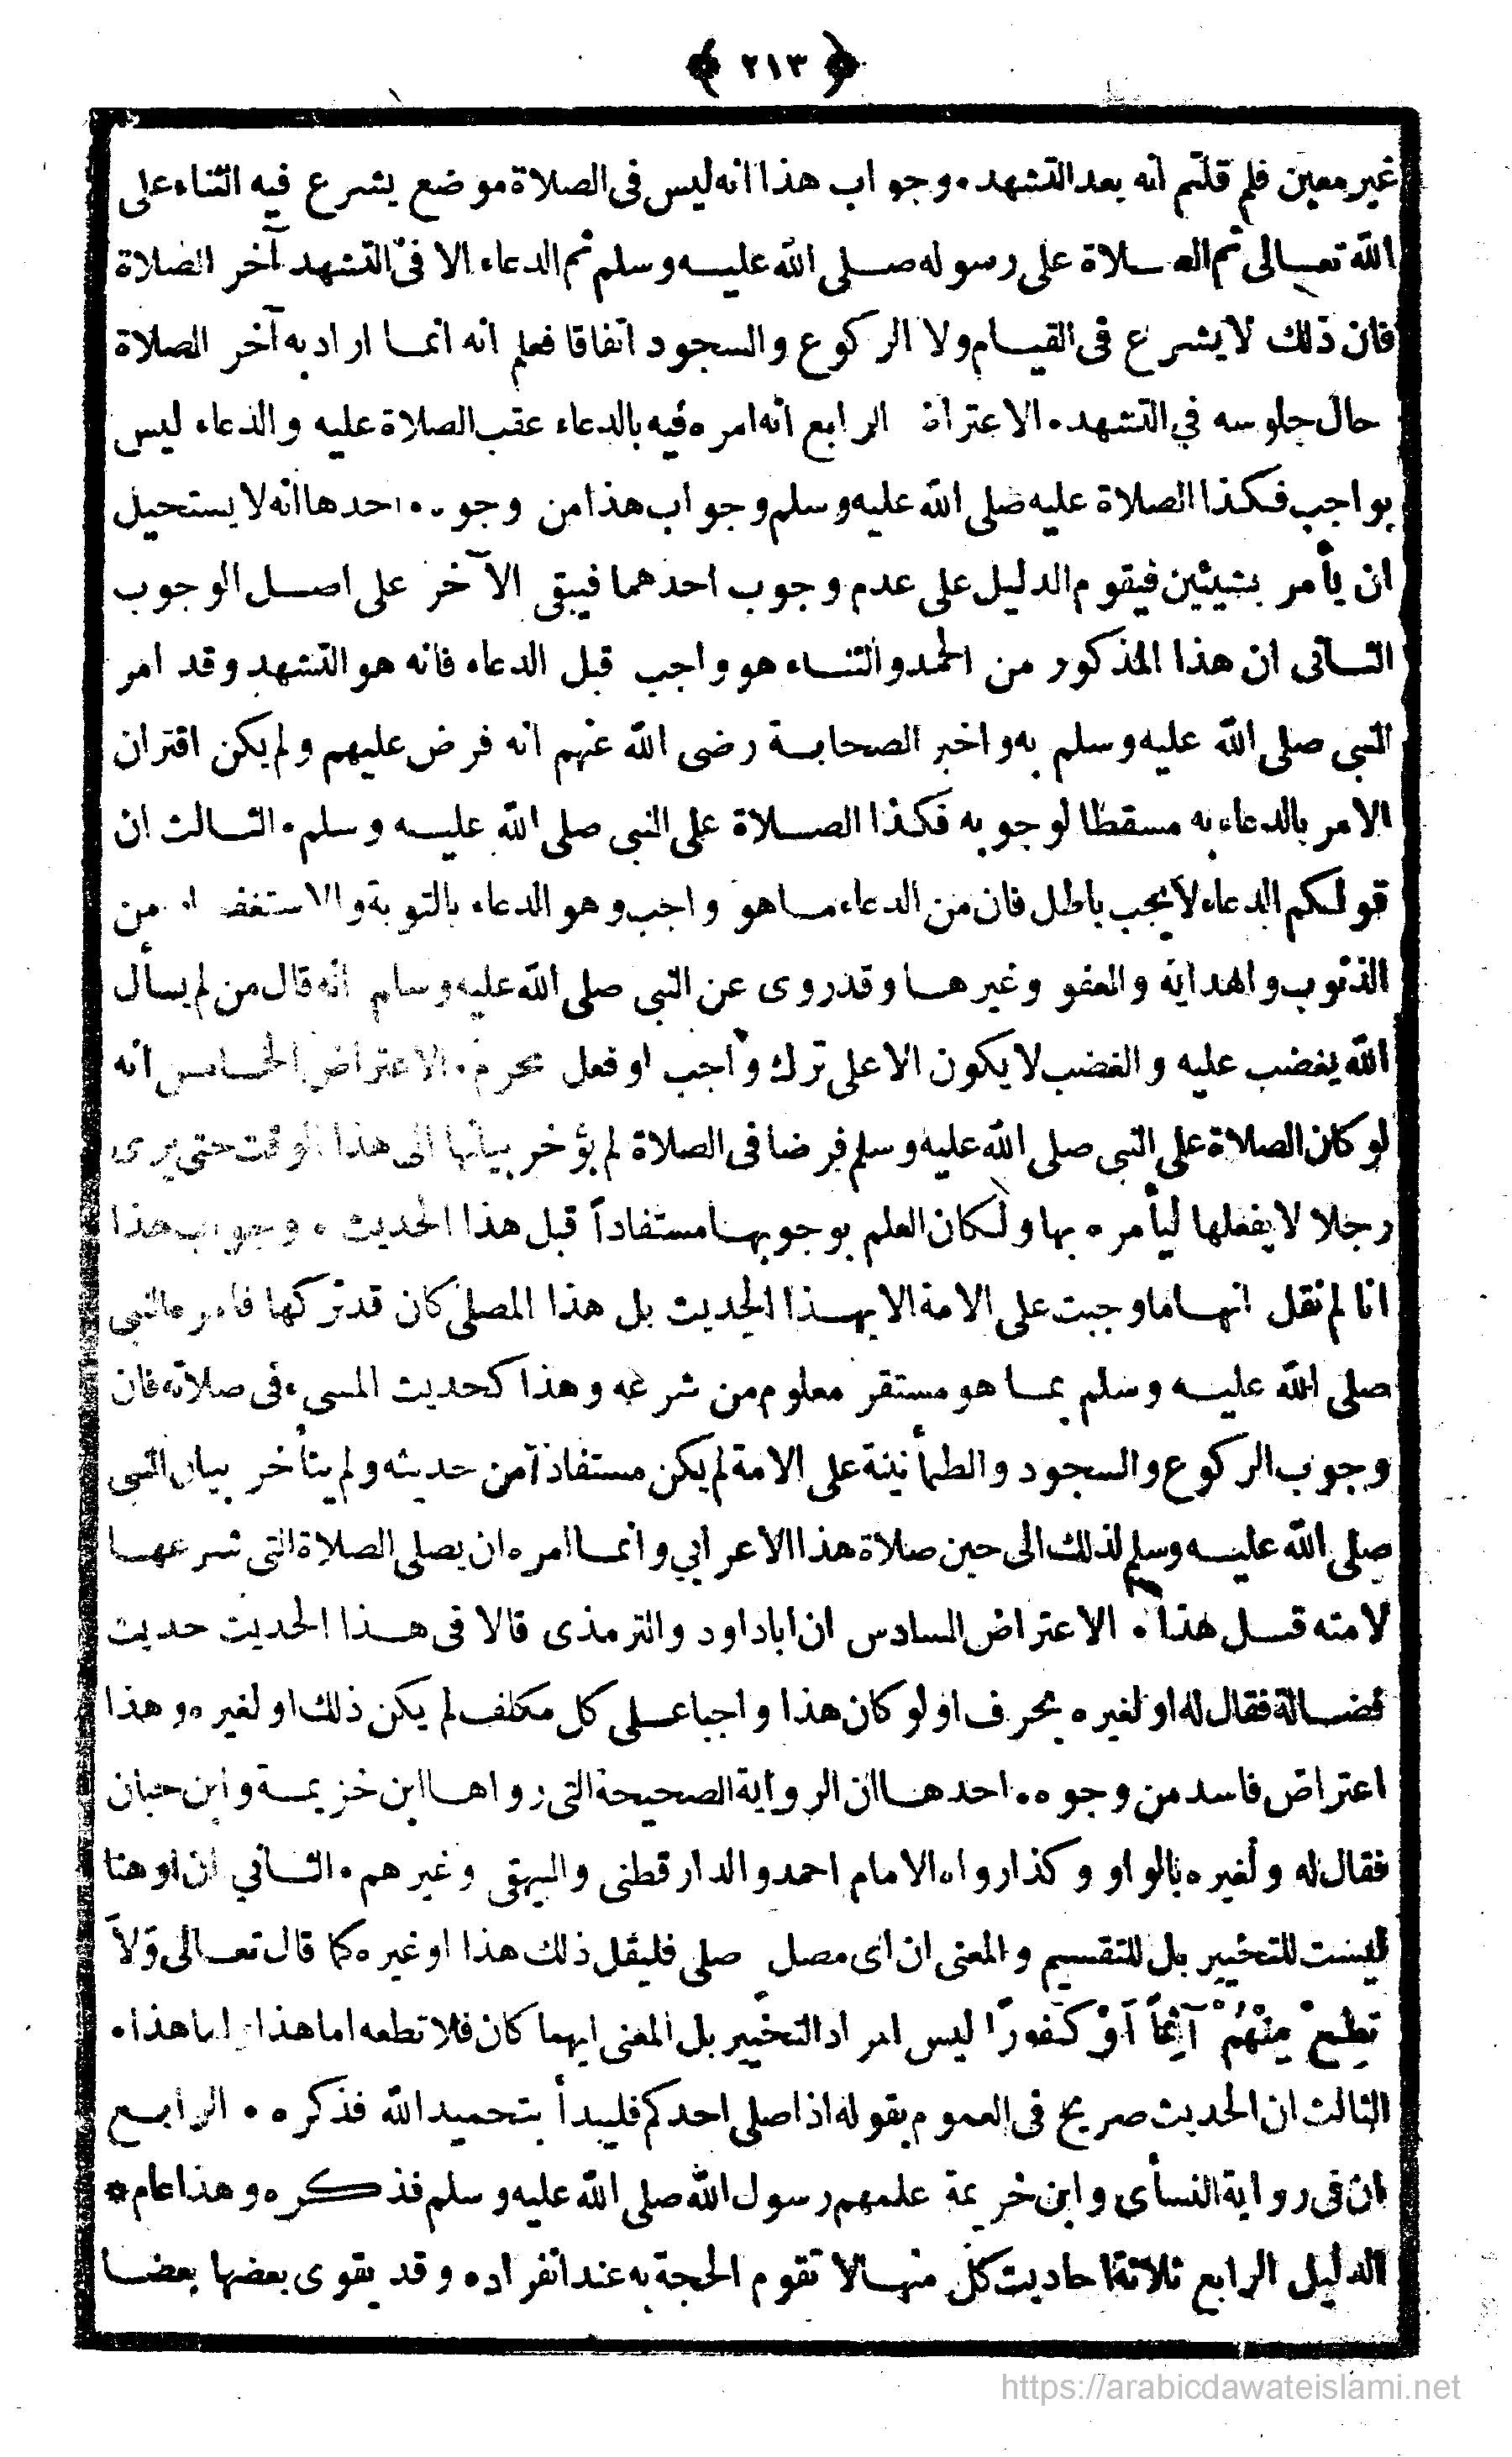 ﴿ ٢١٣ ﴾
غير معين فلم قلتم انه بعد التشهد • وجواب هذا انه ليس فى الصلاة موضع يشرع فيه الثناء على
الله تعالى ثم الصلاة على رسوله صلى الله عليه وسلم ثم الدعاء الا فى التشهد آخر الصلاة
فان ذلك لا يشرع فى القيام ولا الركوع والسجود اتفاقا فعلم انه انما اراد به آخر الصلاة
حال جلوسه في التشهد • الاعتراض الرابع انه امره فيه بالدعاء عقب الصلاة عليه والدعاء ليس
بواجب فكذا الصلاة عليه صلى الله عليه وسلم وجواب هذا من وجوه • احدها انه لا يستحيل
ان يأمر بشيئين فيقوم الدليل على عدم وجوب احدهما فيبقى الآخر على اصل الوجوب
الثانى ان هذا المذكور من الحمد والثناء هو واجب قبل الدعاء فانه هو التشهد وقد امر
النبى صلى الله عليه وسلم به واخبر الصحابة رضى الله عنهم انه فرض عليهم ولم يكن اقتران
الامر بالدعاء به مسقطا لوجوبه فكذا الصلاة على النبى صلى الله عليه وسلم • الثالث ان
قولكم الدعاء لا يجب باطل فان من الدعاء ما هو واجب وهو الدعاء بالتوبة والاستغفار من
الذنوب والهداية والعفو وغيرها وقد روى عن النبى صلى الله عليه وسلم انه قال من لم يسأل
الله يغضب عليه والغضب لا يكون الا على ترك واجب او فعل محرم • الاعتراض الخامس انه
لو كان الصلاة على النبى صلى الله عليه وسلم فرضا فى الصلاة لم يؤخر بيانها الى هذا الوقت حتى يرى
رجلا لا يفعلها ليأمره بها ولكان العلم بوجوبها مستفاداً قبل هذا الحديث • وجواب هذا
انا لم نقل انها ما وجبت على الامة الا بهذا الحديث بل هذا المصلى كان قد تركها فامره النبى
صلى الله عليه وسلم بما هو مستقر معلوم من شرعه وهذا كحديث المسىء فى صلاته فان
وجوب الركوع والسجود والطمأنينة على الامة لم يكن مستفاداً من حديثه ولم يتأخر بيان النبى
صلى الله عليه وسلم لذلك الى حين صلاة هذا الاعرابي وانما امره ان يصلى الصلاة التى شرعها
لامته قبل هذا • الاعتراض السادس ان ابا داود والترمذى قالا فى هذا الحديث حديث
فضالة فقال له او لغيره بحرف او لو كان هذا واجبا على كل مكلف لم يكن ذلك او لغيره وهذا
اعتراض فاسد من وجوه • احدها ان الرواية الصحيحة التى رواها ابن خزيمة وابن حبان
فقال له ولغيره بالواو وكذا رواه الامام احمد والدارقطنى والبيهقى وغيرهم • الثاني ان او هنا
ليست للتخيير بل للتقسيم والمعنى ان اى مصل صلى فليقل ذلك هذا او غيره كما قال تعالى وَلاَ
تُطِعْ مِنْهُمْ آثِمًا اَوْ كَفُورًا ليس المراد التخيير بل المعنى ايهما كان فلا تطعه اما هذا واما هذا •
الثالث ان الحديث صريح فى العموم بقوله اذا صلى احدكم فليبدأ بتحميد الله فذكره • الرابع
ان فى رواية النسأى وابن خزيمة علمهم رسول الله صلى الله عليه وسلم فذكره وهذا عام *
الدليل الرابع ثلاثة احاديث كل منها لا تقوم الحجة به عند انفراده وقد يقوى بعضها بعضا
https://arabicdawateislami.net